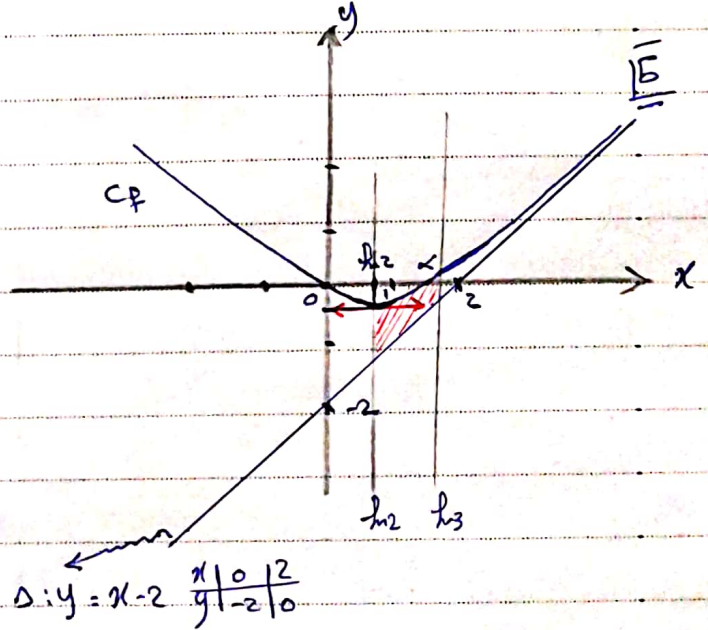 y
5
Cf
ln2
α
x
0
1
2
-2
ln2
ln3
Δ : y = x - 2
x | 0 | 2
y | -2 | 0